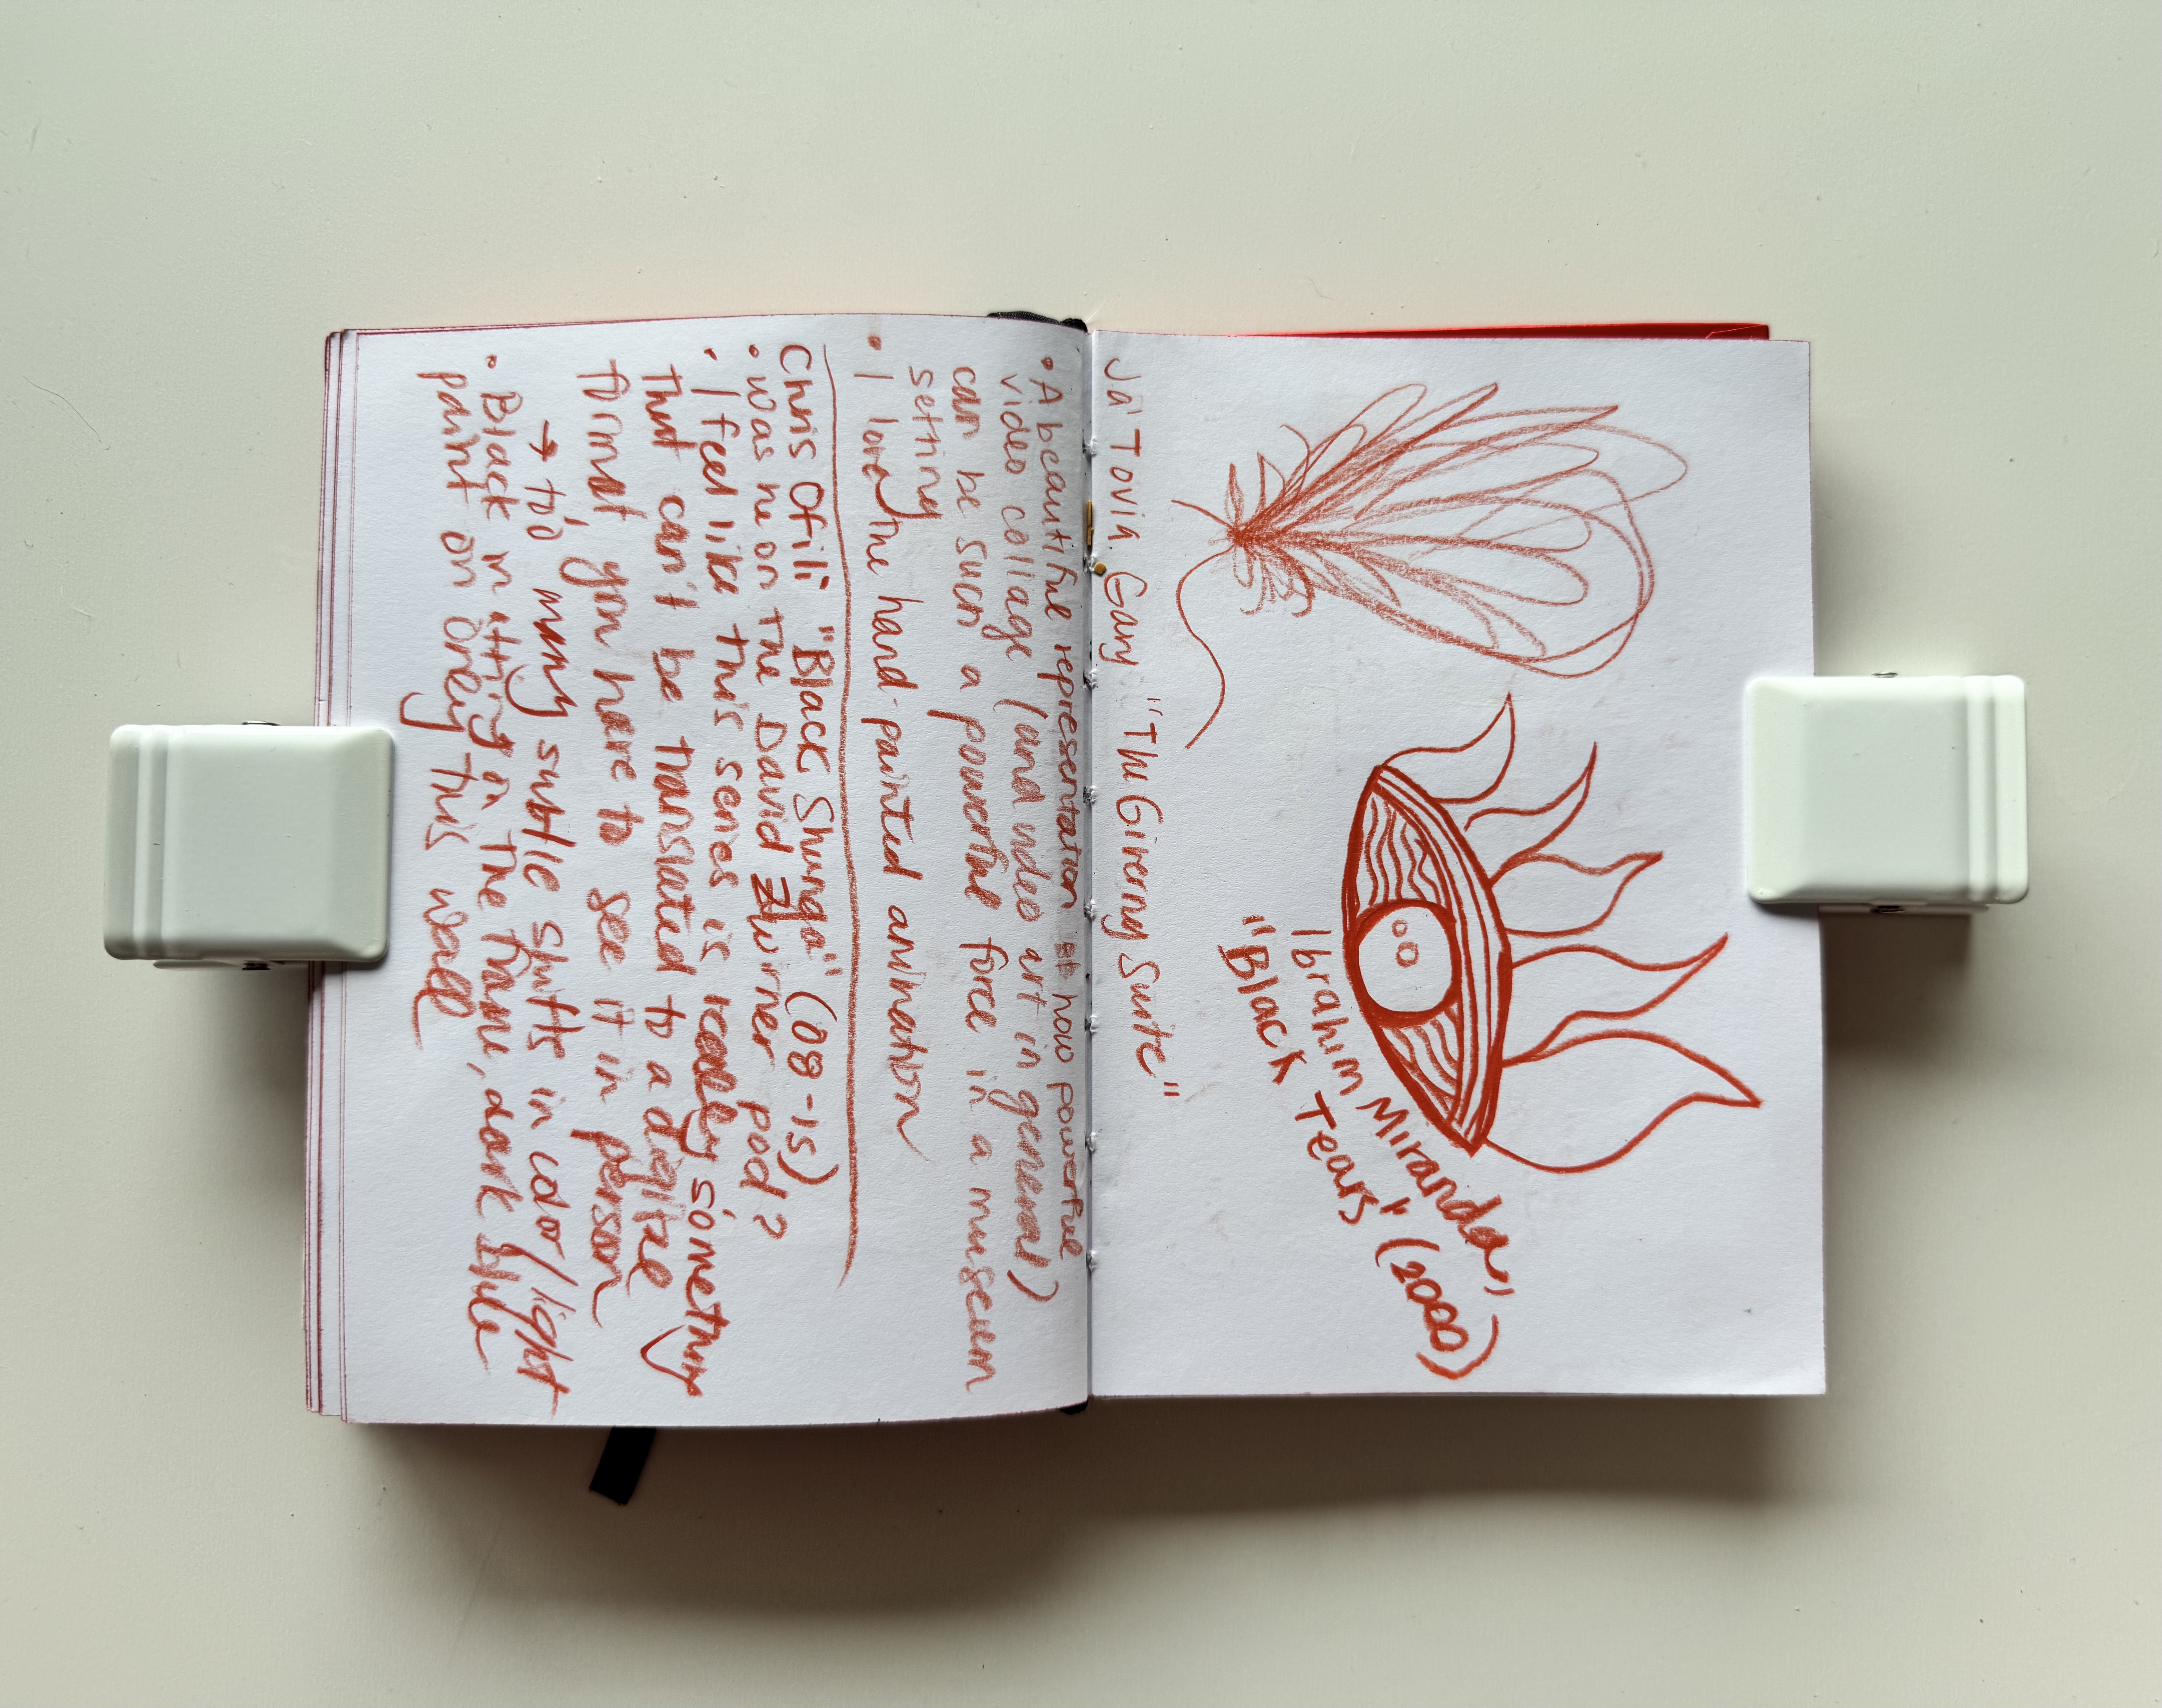 Ibrahim Miranda,
"Black Tears" (2000)
Ja'Tovia Gary "The Giverny Suite"
• A beautiful representation how powerful
video collage (and video art in general)
can be such a powerful force in a museum
setting
• I love the hand-painted animation
Chris Ofili "Black Shunga" (08-15)
• Was he on the David Zwirner pod?
• I feel like this series is really something
that can't be translated to a digital
format, you have to see it in person
→ too many subtle shifts in color/light
• Black matting in the frame, dark blue
paint on grey this wall